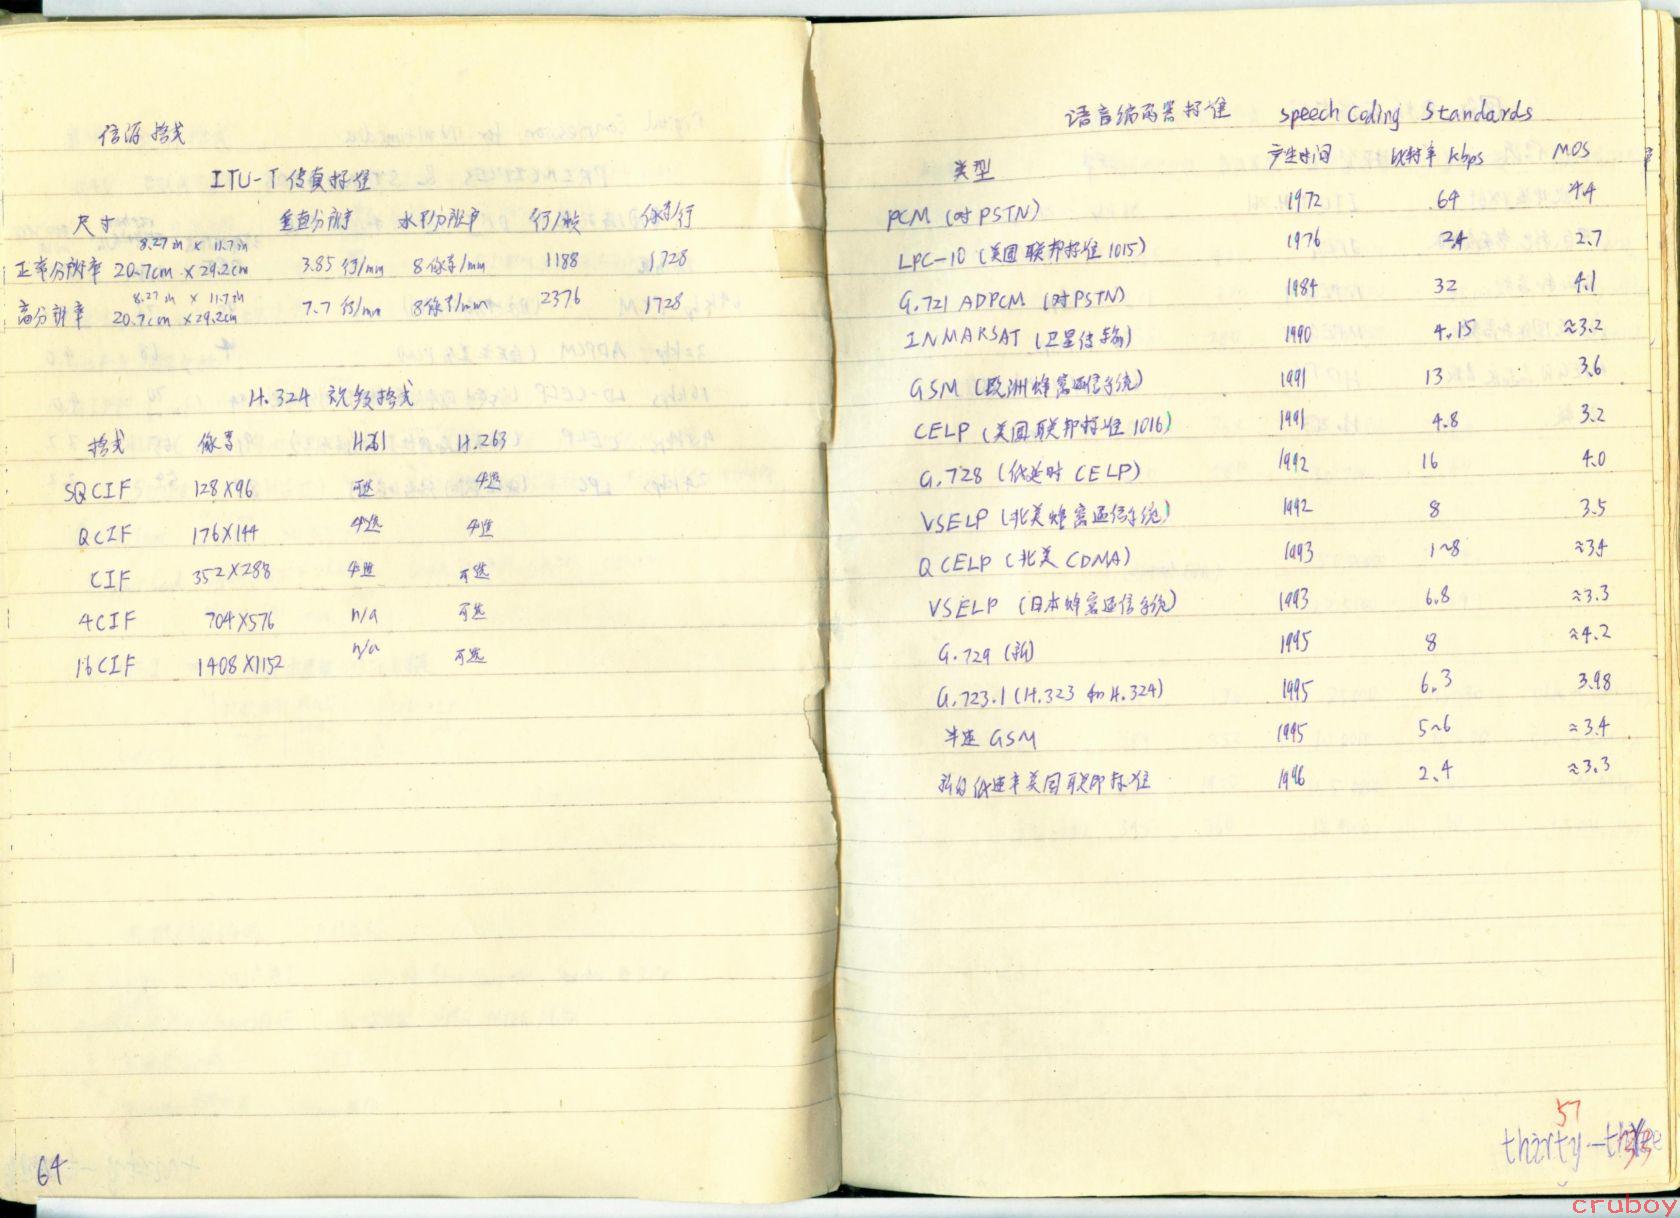 信源格式
ITU-T传真标准
尺寸 垂直分辨率 水平分辨率 行/帧 像素/行
8.27in x 11.7in
正常分辨率 20.7cm x 29.2cm 3.85 行/mm 8像素/mm 1188 1728
8.27in x 11.7in
高分辨率 20.7cm x 29.2cm 7.7 行/mm 8像素/mm 2376 1728
H.324 视频格式
格式 像素 H.261 H.263
SQCIF 128X96 可选 必选
QCIF 176X144 必选 必选
CIF 352X288 必选 可选
4CIF 704X576 n/a 可选
16CIF 1408X1152 n/a 可选
64
语音编码器标准 Speech Coding Standards
类型 产生时间 比特率 kbps MOS
PCM (对PSTN) 1972 64 4.4
LPC-10 (美国联邦标准 1015) 1976 24 2.7
G.721 ADPCM (对PSTN) 1984 32 4.1
INMARSAT (卫星传输) 1990 4.15 ≈3.2
GSM (欧洲蜂窝通信系统) 1991 13 3.6
CELP (美国联邦标准 1016) 1991 4.8 3.2
G.728 (低延时 CELP) 1992 16 4.0
VSELP (北美蜂窝通信系统) 1992 8 3.5
QCELP (北美 CDMA) 1993 1~8 ≈3.4
VSELP (日本蜂窝通信系统) 1993 6.8 ≈3.3
G.729 (新) 1995 8 ≈4.2
G.723.1 (H.323 和 H.324) 1995 6.3 3.98
半速 GSM 1995 5~6 ≈3.4
新的低速率美国联邦标准 1996 2.4 ≈3.3
57
thirty-three
33
cruboy